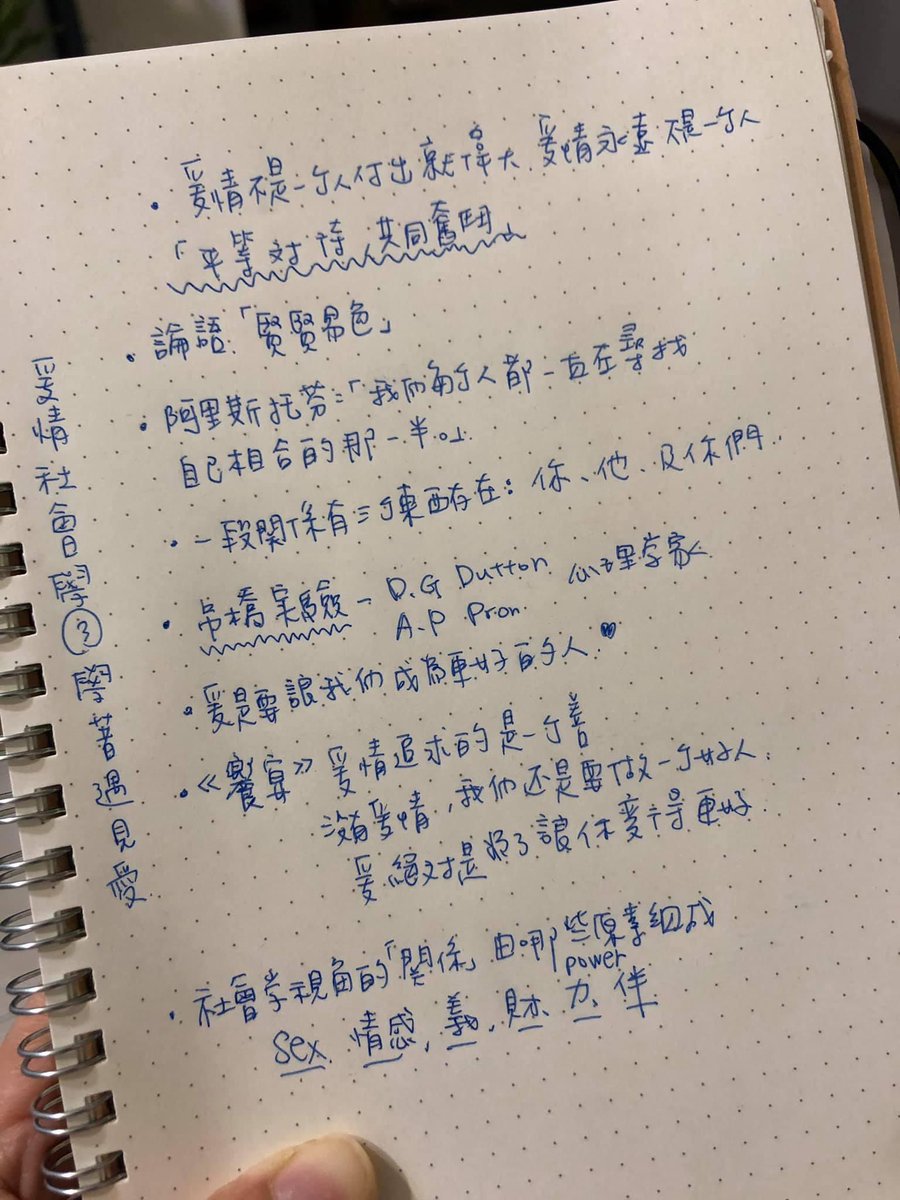 愛情社會學③學著遇見愛
・愛情不是一个人付出就偉大 愛情永遠不是一个人
「平等対待、共同奮鬥」
・論語「賢賢易色」
・阿里斯托芬:「我们每个人都一直在尋找
自己相合的那一半。」
・一段関係有三个東西存在:你、他、及你們.
・吊橋実驗 - D.G Dutton 心理学家
A.P Pron
・爱是要讓我们成為更好的个人
・《饗宴》愛情追求的是一个善
沒有愛情,我们还是要做一个好人.
爱絕対是為了讓你变得更好
・社會学視角的「関係」由哪些原素組成
power
sex、情感,義,財、力、伴